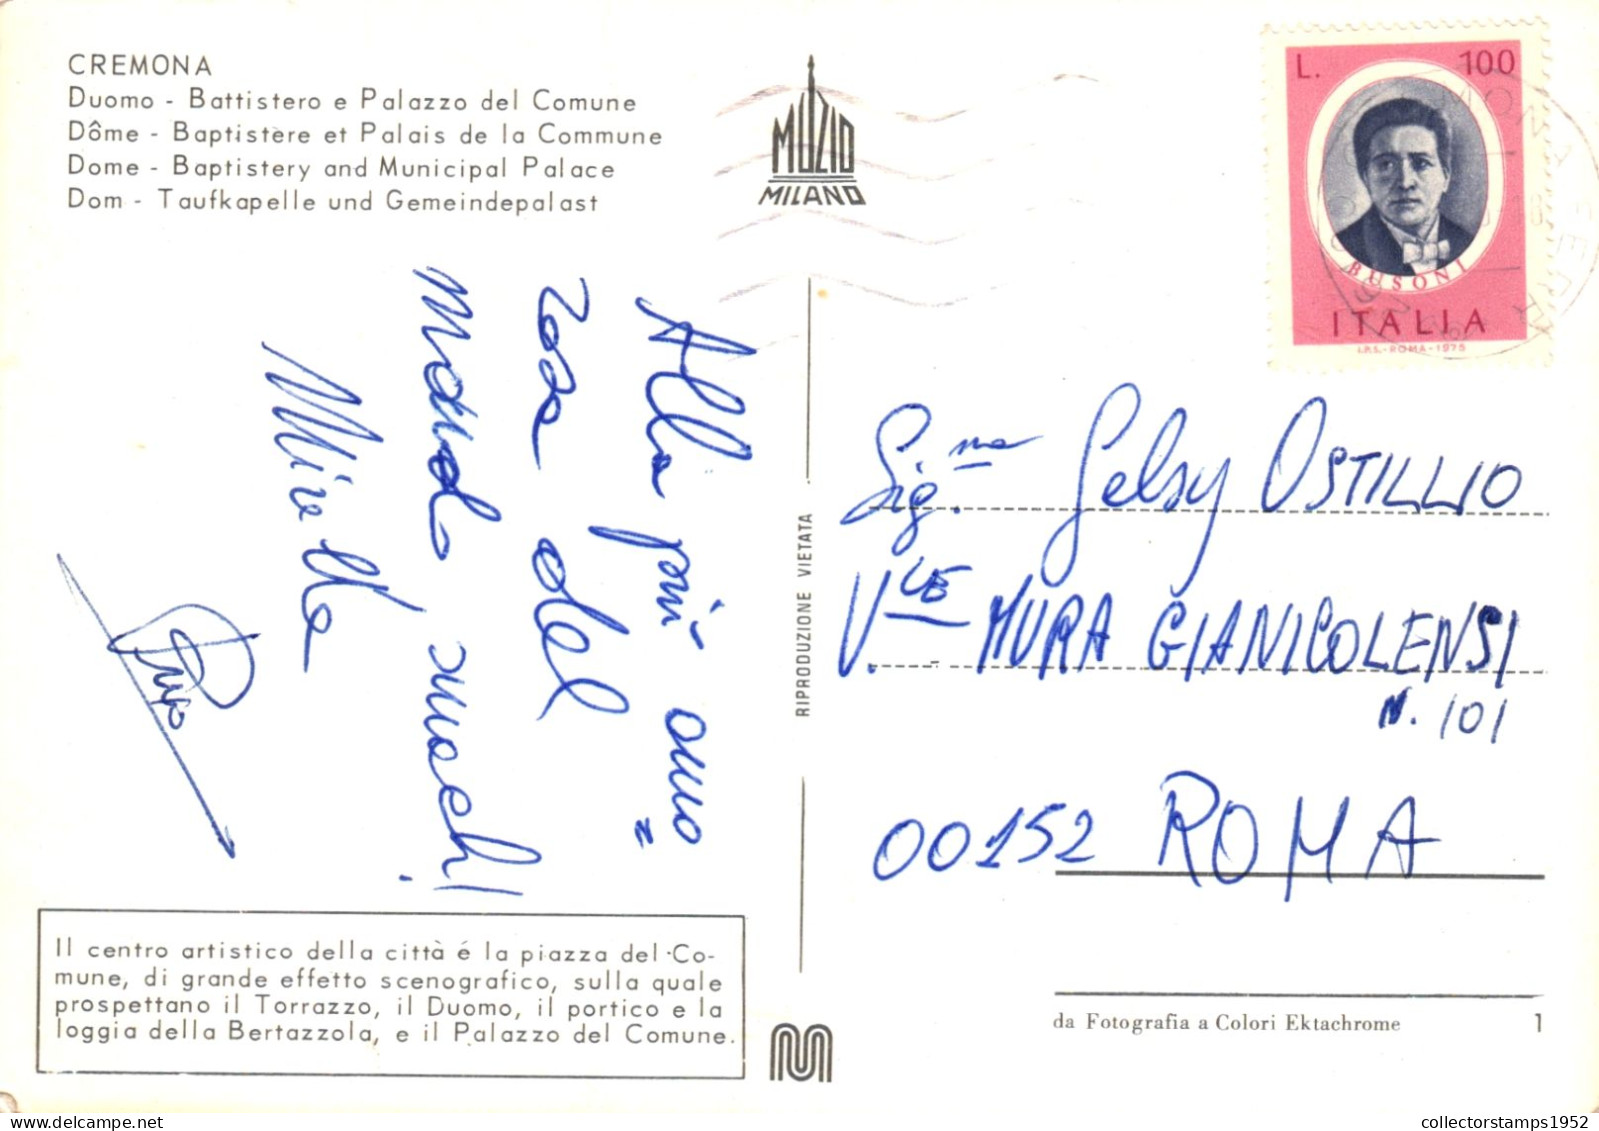 CREMONA
Duomo - Battistero e Palazzo del Comune
Dôme - Baptistère et Palais de la Commune
Dome - Baptistery and Municipal Palace
Dom - Taufkapelle und Gemeindepalast
MUZIO
MILANO
L. 100
BUSONI
ITALIA
I.P.S.-ROMA-1975
Alla più amo=
rosa del
mondo
Mirella
RIPRODUZIONE VIETATA
Sig.na Gelsy OSTILLIO
V.le MURA GIANICOLENSI
N. 101
00152 ROMA
Il centro artistico della città é la piazza del Co-
mune, di grande effetto scenografico, sulla quale
prospettano il Torrazzo, il Duomo, il portico e la
loggia della Bertazzola, e il Palazzo del Comune.
da Fotografia a Colori Ektachrome 1
collectorstamps1952